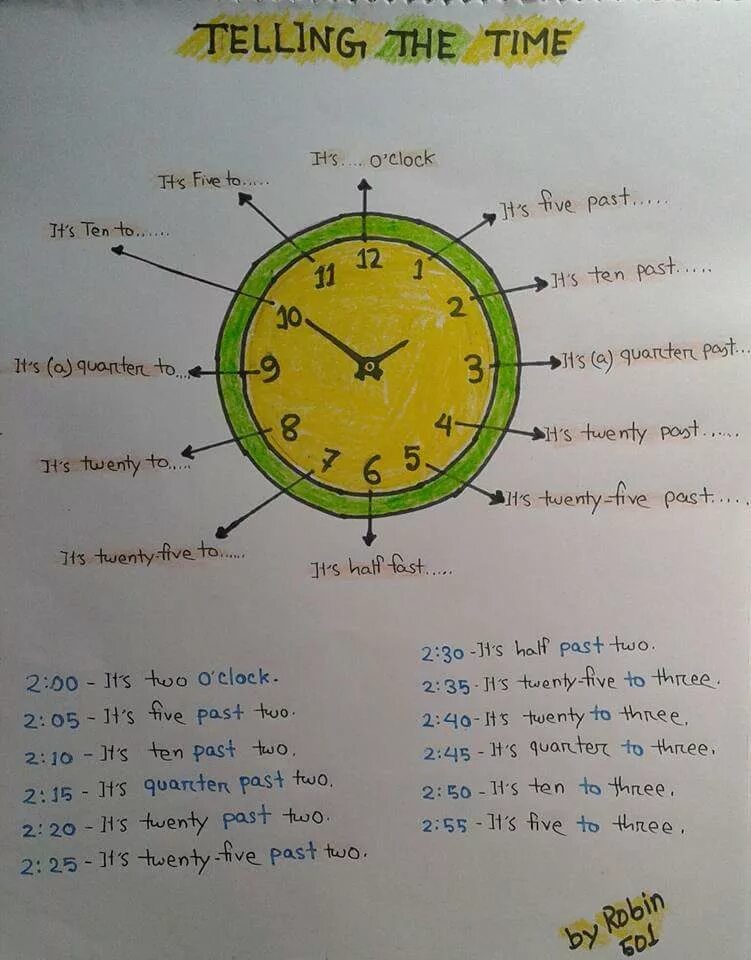 TELLING THE TIME
It's.... O'clock
It's five past.....
It's ten past.....
It's (a) quarter past...
It's twenty past......
It's twenty-five past.....
It's half fast.....
It's twenty-five to......
It's twenty to.....
It's (a) quarter to...
It's Ten to......
It's Five to.....
12
1
2
3
4
5
6
7
8
9
10
11
2:00 - It's two O'clock.
2:05 - It's five past two.
2:10 - It's ten past two.
2:15 - It's quarter past two.
2:20 - It's twenty past two.
2:25 - It's twenty-five past two.
2:30 - It's half past two.
2:35 - It's twenty-five to three.
2:40 - It's twenty to three.
2:45 - It's quarter to three.
2:50 - It's ten to three.
2:55 - It's five to three.
by Robin
501